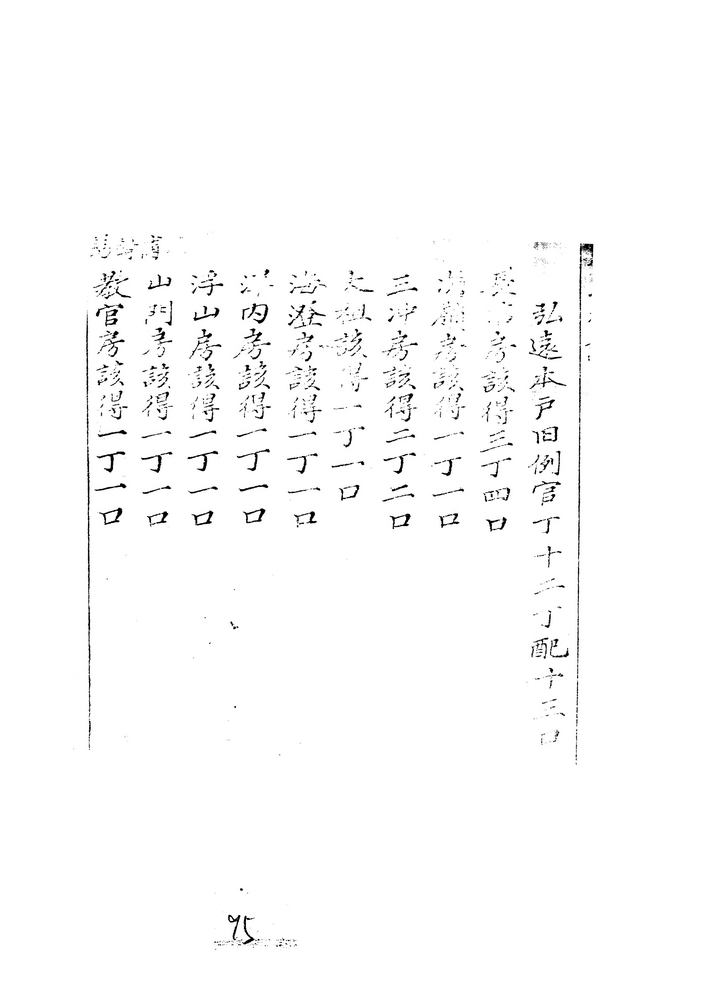 弘遠本戸旧例官丁十二丁配十三口
房該得三丁四口
房該得一丁一口
三冲房該得二丁二口
太祖該得一丁一口
海澄房該得一丁一口
内房該得一丁一口
浮山房該得一丁一口
山門房該得一丁一口
教官房該得一丁一口
95